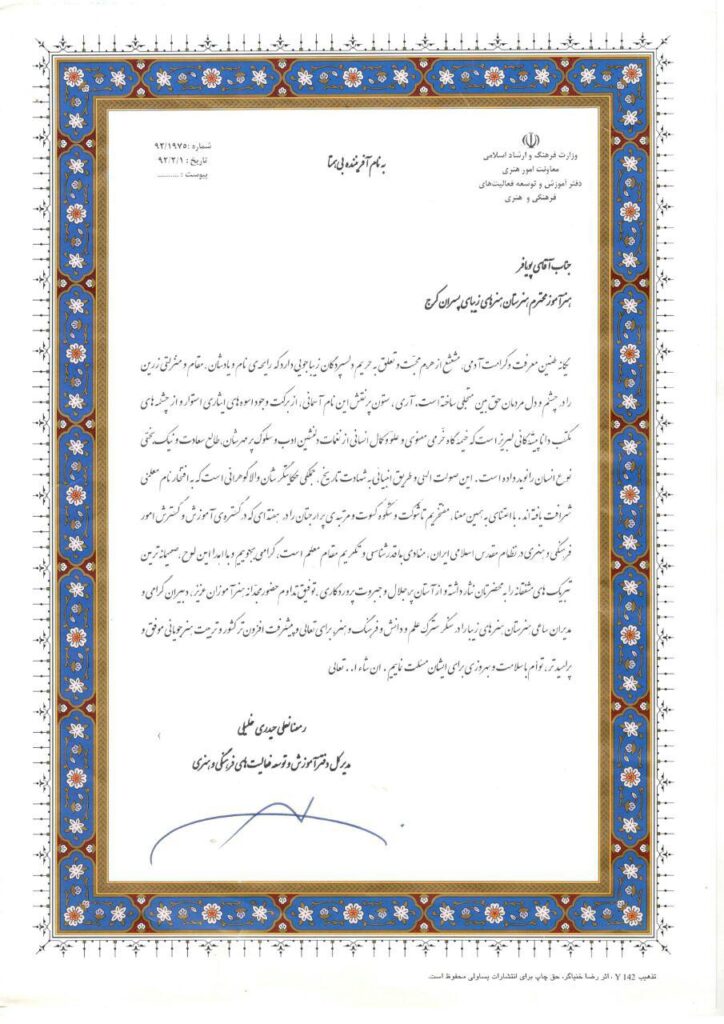 وزارت فرهنگ و ارشاد اسلامی
معاونت امور هنری
دفتر آموزش و توسعه فعالیت‌های
فرهنگی و هنری
به نام آفریننده بی همتا
شماره : ۹۲/۱۹۷۵
تاریخ : ۹۲/۲/۱
پیوست : ..........
جناب آقای پویافر
هنرآموز محترم هنرستان هنرهای زیبای پسران کرج
یگانه طنین معرفت و کرامت آدمی، مشعشع از هرم محبت و تعلق به حریم دلسپردگان زیباجویی دارد که رایحه‌ی نام و یادشان، مقام و منزلتی زرین
را در چشم و دل مردمان حق بین متجلی ساخته است. آری، ستون پرنقش این نام آسمانی، از برکت وجود اسوه های ایثاری استوار و از چشمه های
مکتب دانا پیشگانی لبریز است که خیمه گاه خرمی معنوی و علو و کمال انسانی از نغمات دلنشین ادب و سلوک پر مهرشان، طالع سعادت و نیک بختی
نوع انسان را نوید داده است. این صولت الهی و طریق انبیائی به شهادت تاریخ، جملگی حکایتگر شان والا گوهرانی است که به افتخار نام معلمی
شرافت یافته اند. با اعتنای به همین معنا، مفتخریم تا شوکت و شکوه کسوت و مرتبه‌ی پر ارجتان را در هفته ای که در گستره‌ی آموزش و گسترش امور
فرهنگی و هنری در نظام مقدس اسلامی ایران، منادی ماقدرشناسی و تکریم مقام معلم است، گرامی بجوییم و با اهدا این لوح، صمیمانه ترین
تبریک های مشفقانه را به محضرتان نثار داشته و از آستان پر جلال و جبروت پروردگاری، توفیق تداوم حضور مجدانه هنرآموزان عزیز، دبیران گرامی و
مدیران ساعی هنرستان هنرهای زیبا را در سنگر سترگ علم و دانش و فرهنگ و هنر، برای تعالی و پیشرفت افزون تر کشور و تربیت هنرجویانی موفق و
پرامید تر، توأم با سلامت و بهروزی برای ایشان مسئلت نماییم. ان شاء ا... تعالی
رمضانعلی حیدری خلیلی
مدیر کل دفتر آموزش و توسعه فعالیت های فرهنگی و هنری
تذهیب Y 142 ، اثر رضا خنیاگر، حق چاپ برای انتشارات یساولی محفوظ است.